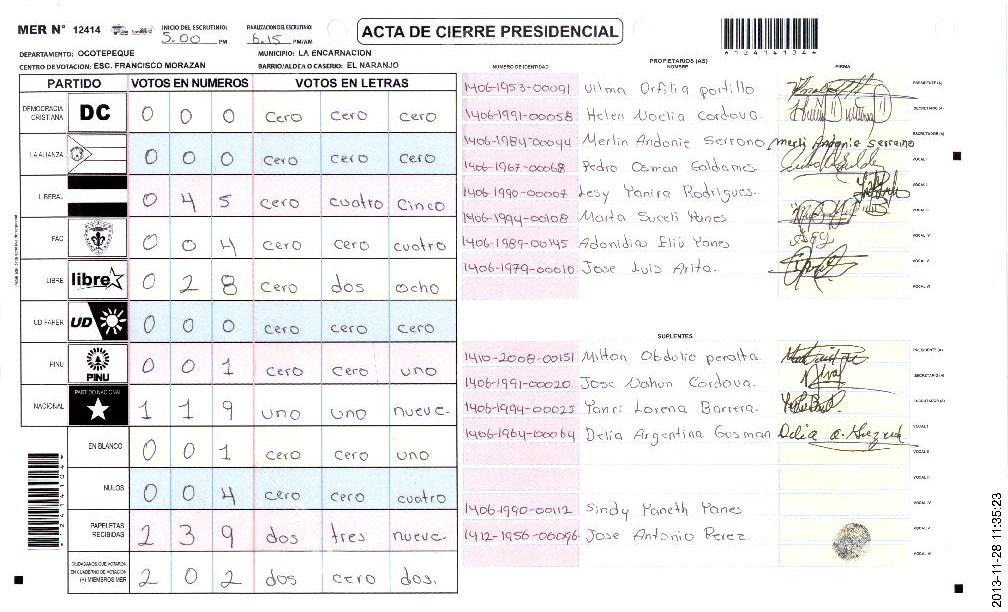 MER N° 12414 INICIO DEL ESCRUTINIO: 5.00 PM FINALIZACION DEL ESCRUTINIO: 6.15 PM/AM
ACTA DE CIERRE PRESIDENCIAL
DEPARTAMENTO: OCOTEPEQUE MUNICIPIO: LA ENCARNACION
CENTRO DE VOTACION: ESC. FRANCISCO MORAZAN BARRIO/ALDEA O CASERIO: EL NARANJO
PARTIDO VOTOS EN NUMEROS VOTOS EN LETRAS
DEMOCRACIA CRISTIANA DC 0 0 0 cero cero cero
LA ALIANZA 0 0 0 cero cero cero
LIBERAL 0 4 5 cero cuatro cinco
FAC 0 0 4 cero cero cuatro
LIBRE libre 0 2 8 cero dos ocho
UD FAPER UD 0 0 0 cero cero cero
PINU PINU 0 0 1 cero cero uno
NACIONAL PARTIDO NACIONAL 1 1 9 uno uno nueve
EN BLANCO 0 0 1 cero cero uno
NULOS 0 0 4 cero cero cuatro
PAPELETAS RECIBIDAS 2 3 9 dos tres nueve
CIUDADANOS QUE VOTARON EN CUADERNO DE VOTACION (+) MIEMBROS MER 2 0 2 dos cero dos.
PROPIETARIOS (AS)
NUMERO DE IDENTIDAD NOMBRE FIRMA
1406-1953-00091 Vilma Orfilia portillo PRESIDENTE (A)
1406-1991-00058 Helen Noelia Cordova. SECRETARIO (A)
1406-1984-00044 Merlin Andonie Serrano ESCRUTADOR (A)
1406-1967-00068 Pedro Osman Galdames. VOCAL I
1406-1990-00007 Lesy Yanira Rodrigues. VOCAL II
1406-1994-00108 Marta Suceli Yanes VOCAL III
1406-1989-00145 Adonidia Eliú Yanes VOCAL IV
1406-1979-00010 Jose Luis Arita. VOCAL V
VOCAL VI
SUPLENTES
1410-2008-00151 Milton Obdulio peralta. PRESIDENTE (A)
1406-1991-00020 Jose Nahun Cordova. SECRETARIO (A)
1406-1994-00025 Yanri Lorena Barrera. ESCRUTADOR (A)
1406-1964-00064 Delia Argentina Gusman VOCAL I
VOCAL II
VOCAL III
1406-1990-00112 Sindy Yaneth Yanes VOCAL IV
1412-1956-00096 Jose Antonio Perez. VOCAL V
VOCAL VI
2013-11-28 11:35:23